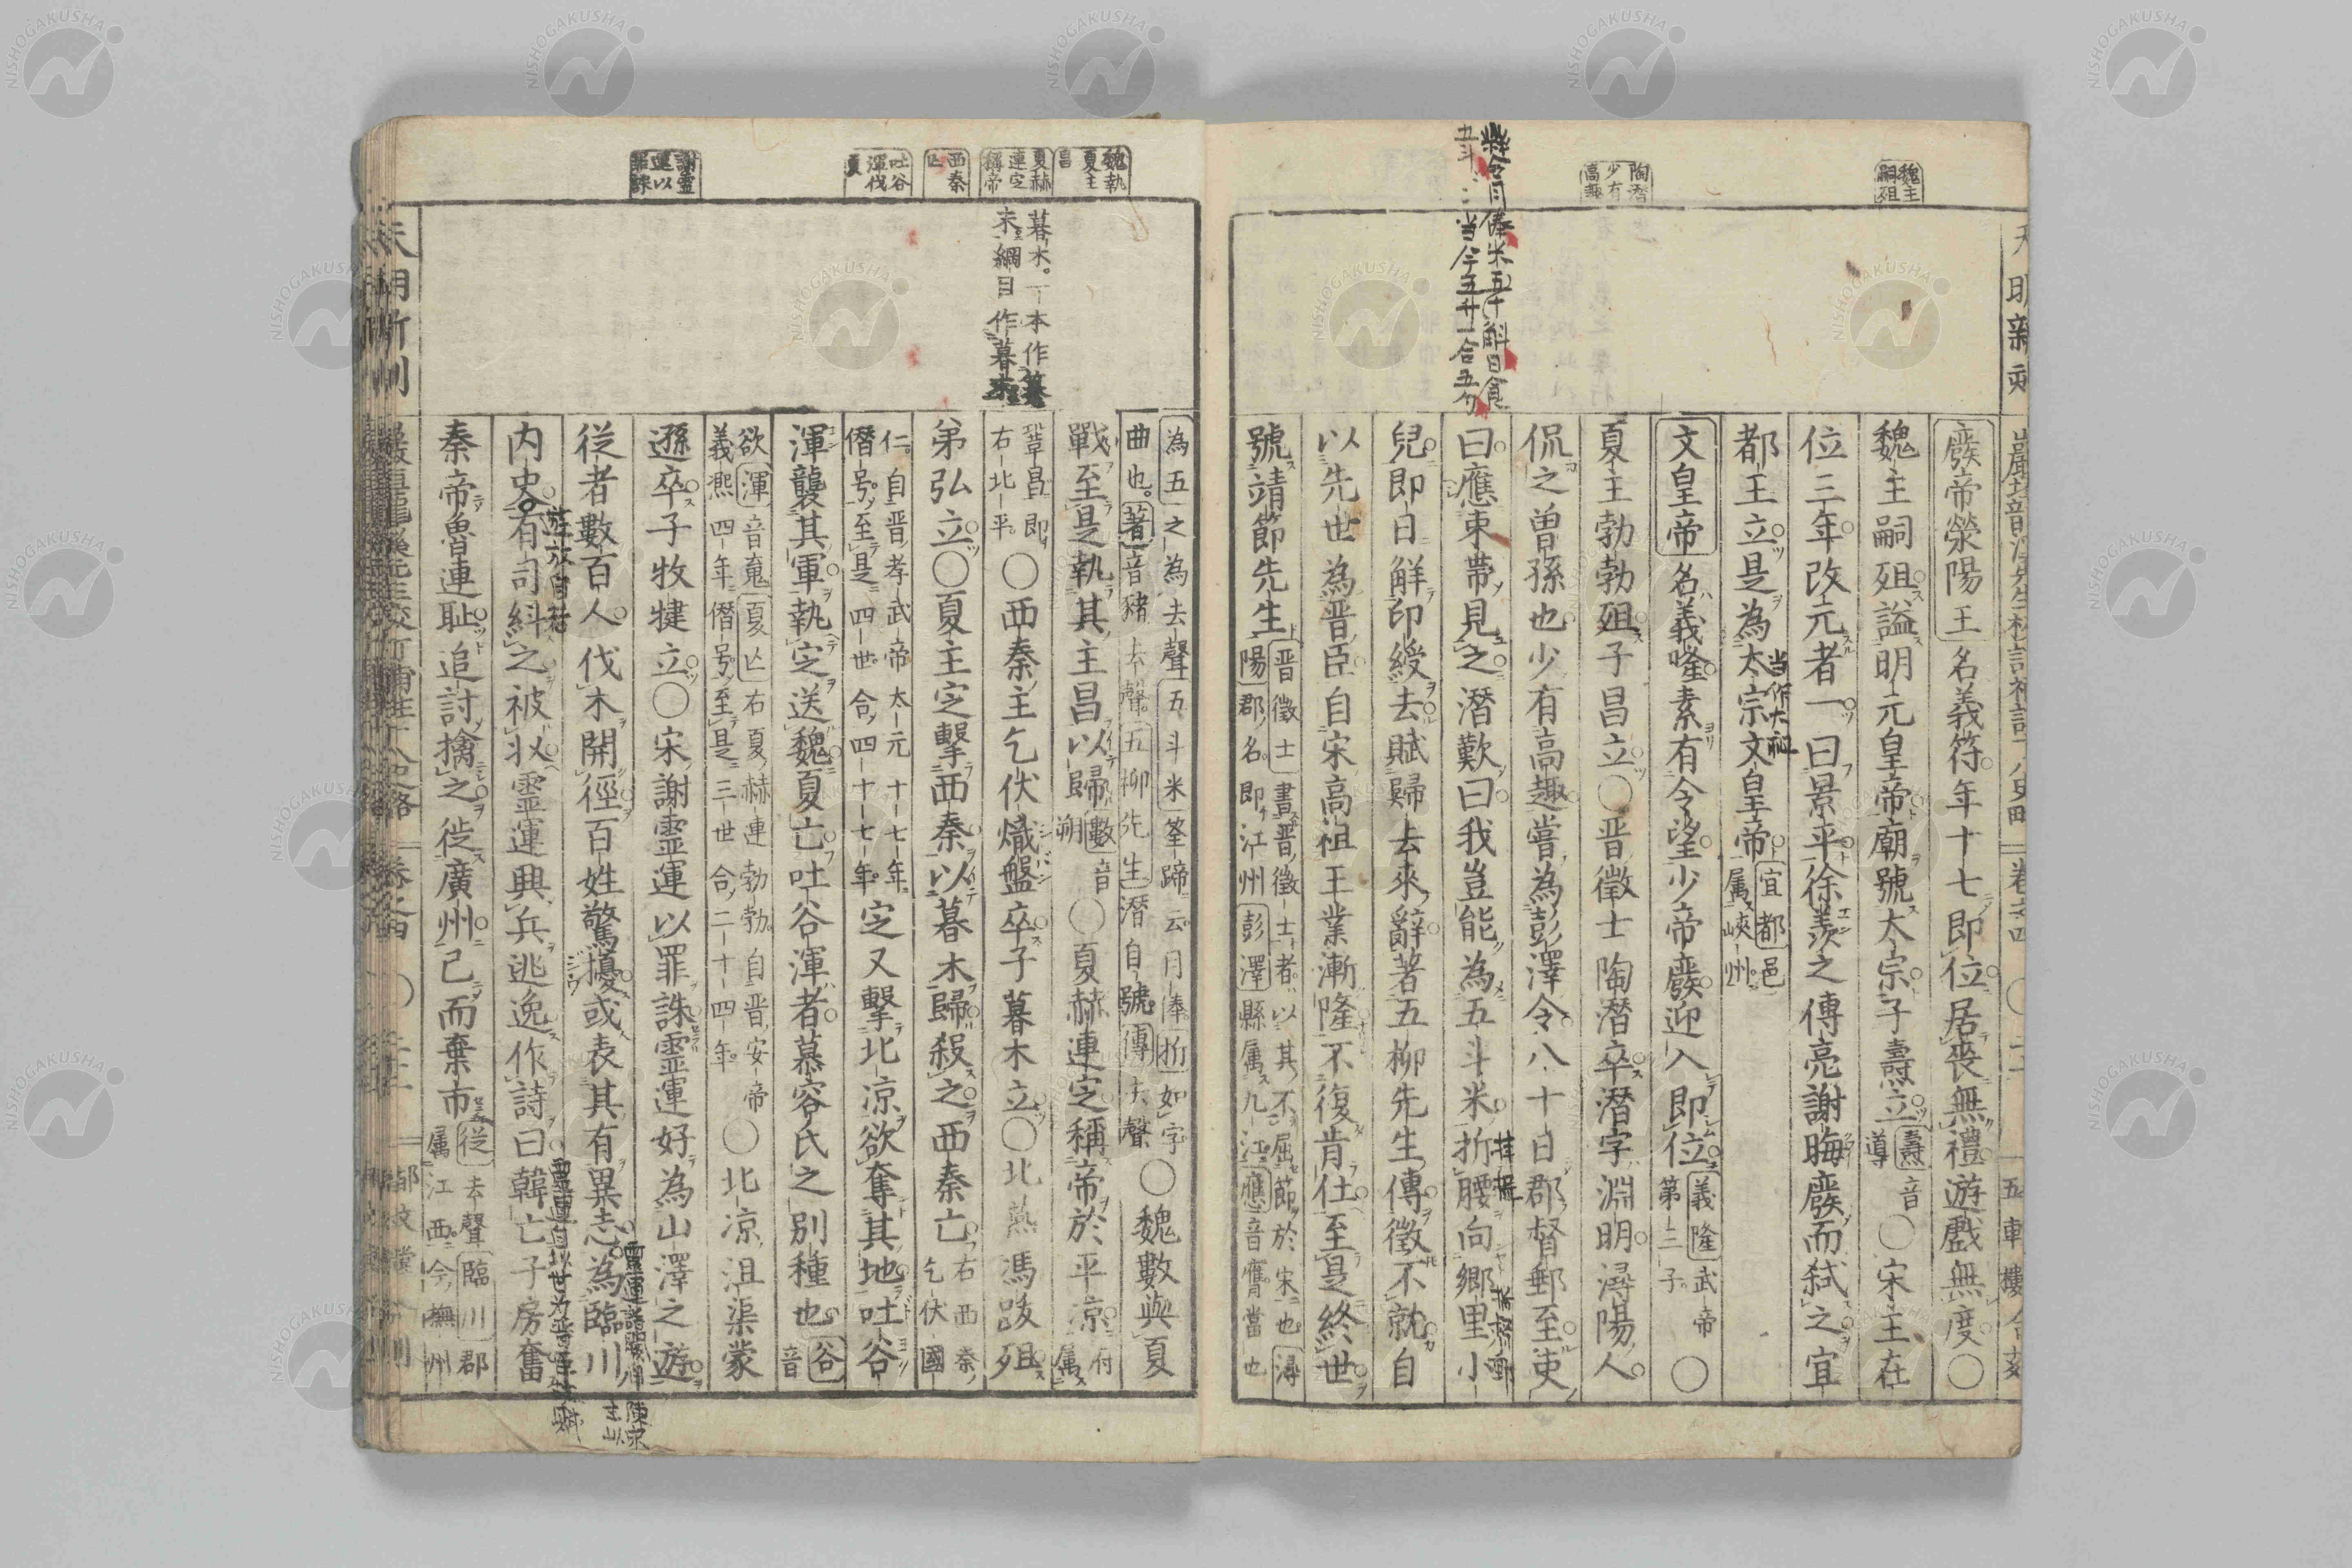 NISHOGAKUSHA
魏主嗣殂
陶潜少有高趣
廢帝滎陽王名義符年十七即位居喪無禮遊戲無度○
魏主嗣殂謚明元皇帝廟號太宗子壽立壽音導○宋主在
位三年改元者一曰景平徐羨之傅亮謝晦廢而弑之宜
都王立是為太宗文皇帝宜都邑属峽州
当作太祖
文皇帝名義隆素有令望少帝廢迎入即位義隆武帝第三子○
夏主勃勃殂子昌立○晋徵士陶潜卒潜字淵明潯陽人
侃之曽孫也少有高趣嘗為彭澤令八十日郡督郵至吏
曰應束帶見之潜歎曰我豈能為五斗米折腰向鄉里小
兒即日觧印綬去賦歸去來辭著五柳先生傳徵不就自
以先世為晋臣自宋高祖王業漸隆不復肯仕至是終世
號靖節先生晋徵士書晋徵士者以其不屈節於宋也潯陽郡名即江州彭澤縣属九江應音膺當也
魏執夏主昌
夏赫連定稱帝
西秦亡
吐谷渾伐夏
謝靈運以罪誅
暮木一本作
末綱目作暮
為五之為去聲五斗米筌蹄云月俸折如字曲也著音豬去聲五柳先生潜自號傳去聲○魏數與夏
戰至是執其主昌以歸數音朔○夏赫連定稱帝於平凉府属
鞏昌即右北平○西秦主乞伏熾盤卒子暮木立○北燕馮跋殂
弟弘立○夏主定擊西秦以暮木歸殺之西秦亡右西秦乞伏國
仁自晋孝武帝太元十七年僭号至是四世合四十七年定又擊北凉欲奪其地吐谷
渾襲其軍執定送魏夏亡吐谷渾者慕容氏之別種也谷音
欲渾音䰟夏亡右夏赫連勃勃自晋安帝義熙四年僭号至是三世合二十四年○北凉沮渠蒙
遜卒子牧犍立○宋謝靈運以罪誅靈運好為山澤之遊
從者數百人伐木開徑百姓驚擾或表其有異志為臨川
内史有司糾之被收靈運興兵逃逸作詩曰韓亡子房奮
遊放自若
秦帝魯連耻追討擒之徙廣州已而棄市徙去聲臨川郡属江西今撫州